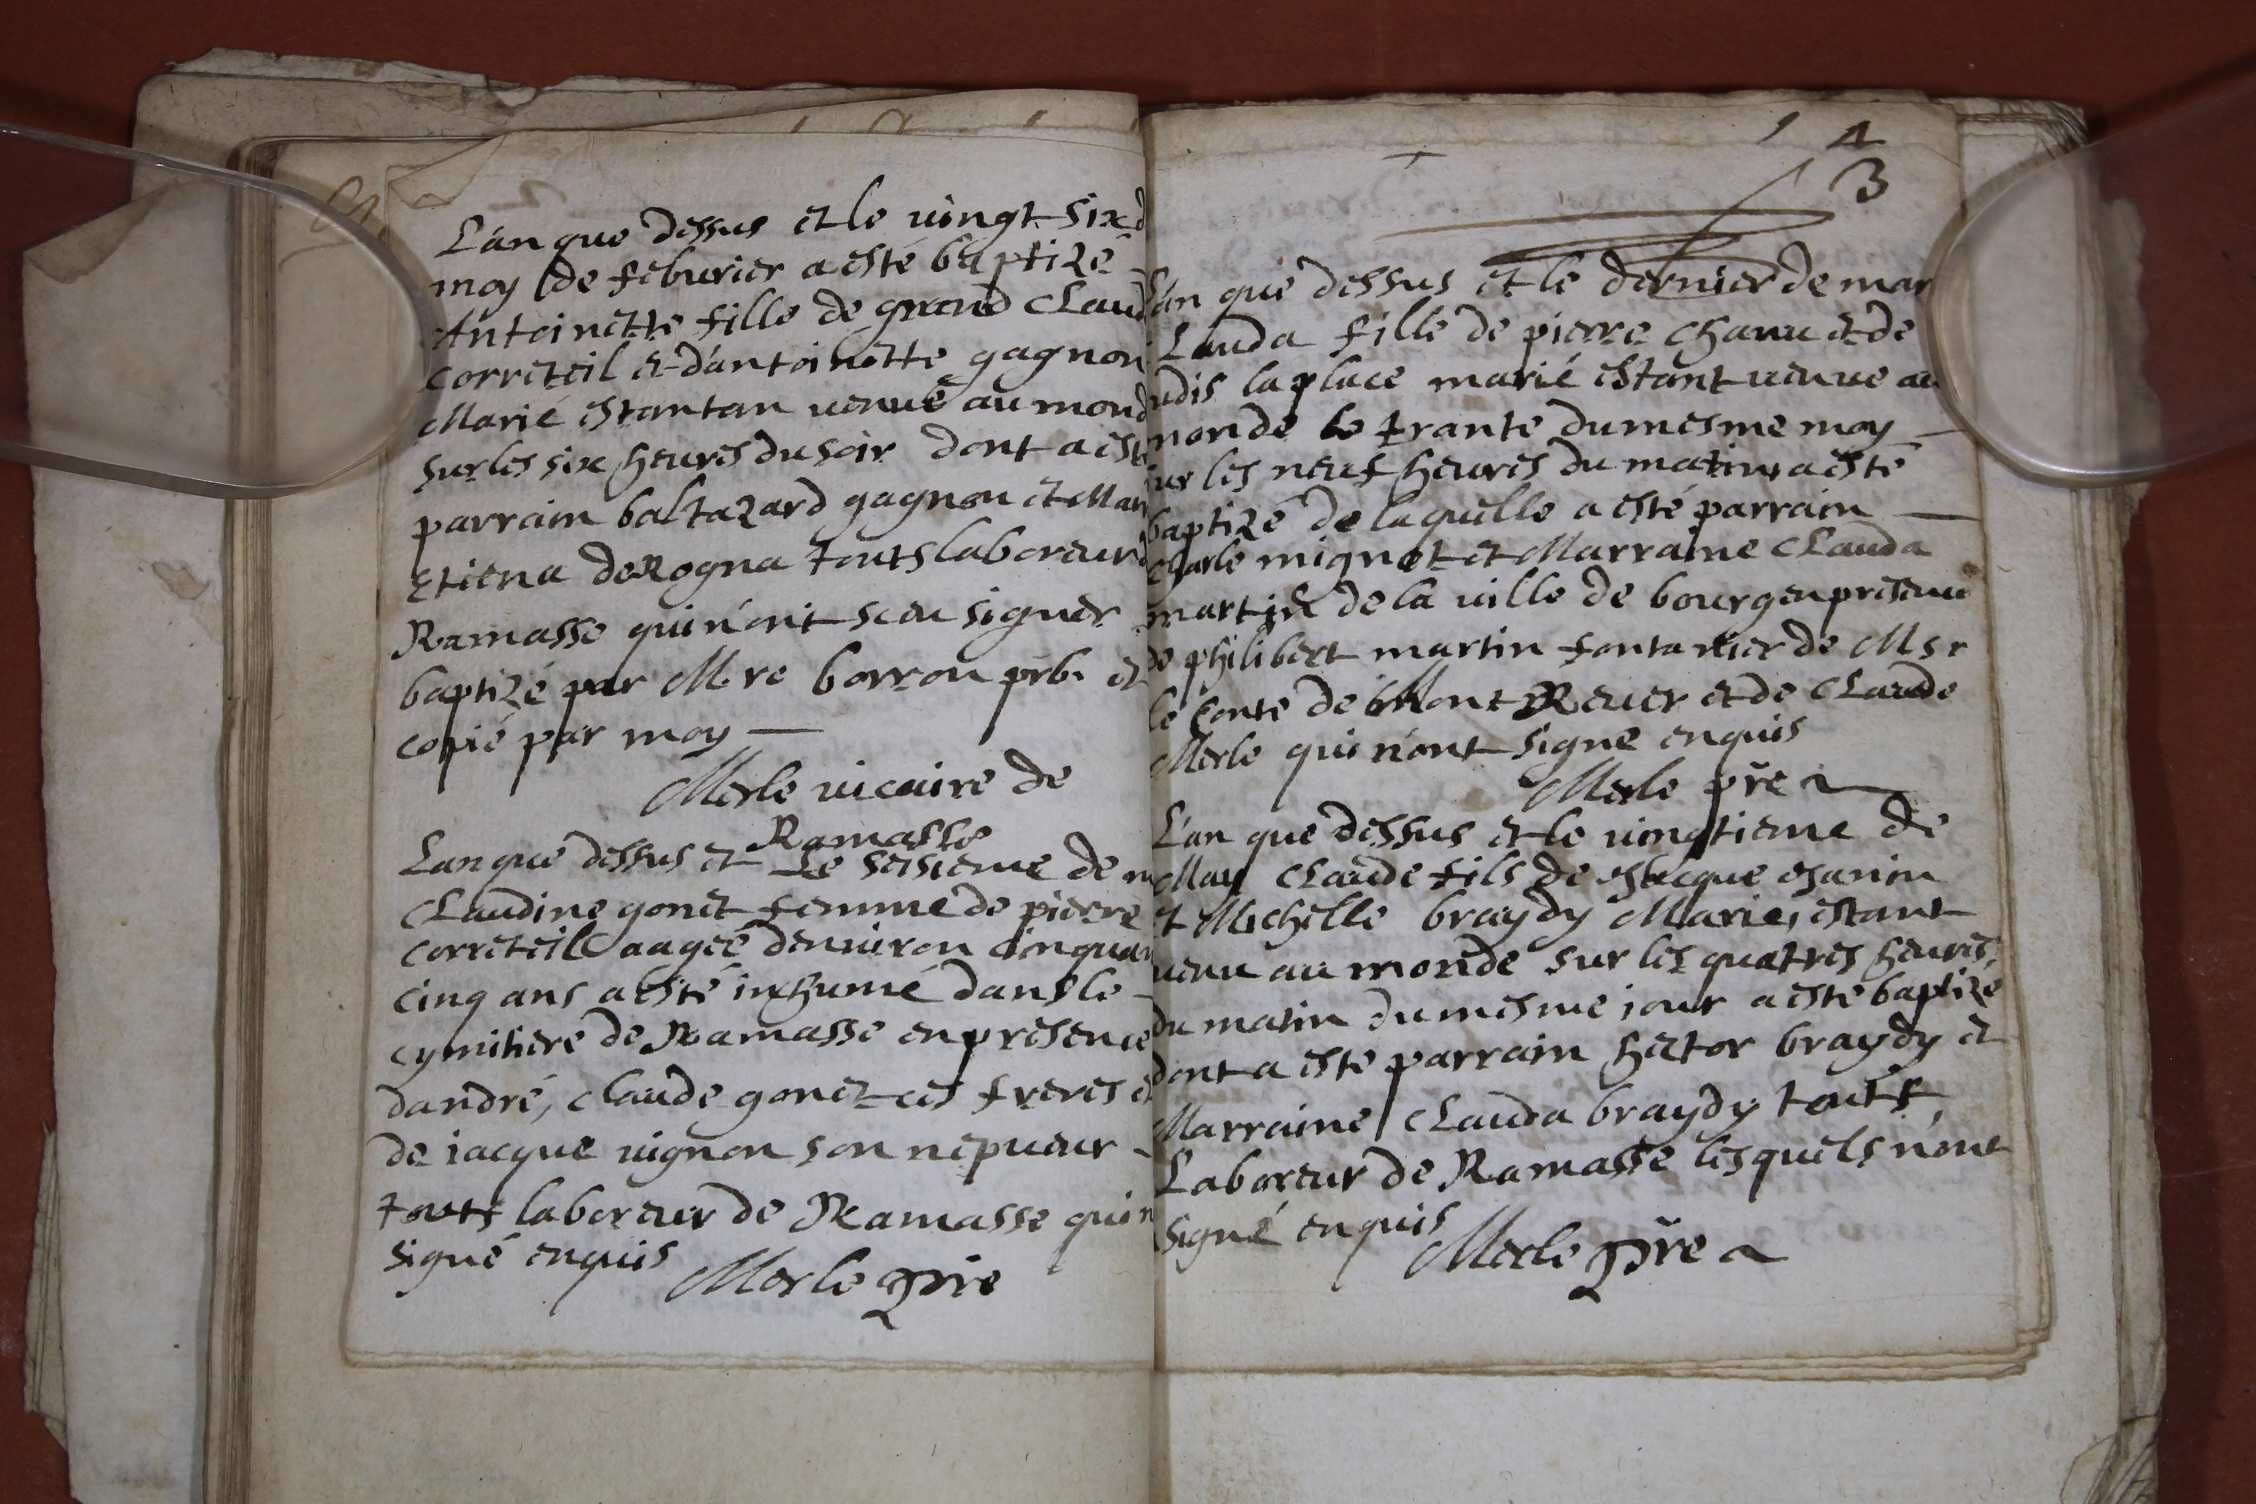 L'an que dessus et le vingt six d
moy de feburier a esté baptizé
Antoinette fille de grand Claud
correteil et d'antoinette gagnon
Marié estantan venue au mond
sur les six heures du soir dont a esté
parrain baltazard gagnon et Mar
Etiena de Rogna touts laboreur
Ramasse qui n'ont sceu signer
baptizé par Mre borron prb. et
copié par moy
Merle vicaire de
Ramasse
Lan que dessus et Le sesieme de m
Claudine gonet femme de pierre
correteil aagée denviron cinquan
cinq ans a esté inhumé dans le
cymitiere de Ramasse en presence
dandré, claude gonet ces freres et
de iacque vignon son nepueur
touts laboreur de Ramasse qui n
signé enquis
Merle pre
4
3
L'an que dessus et le dernier de mar
Lauda fille de pierre chanu et de
udis la place marié estant venue au
monde le trante du mesme moy
sur les neuf heures du matin a esté
baptizé de laquelle a esté parrain
charle mignot et Marraine Clauda
martin de la ville de bourg en presence
de philibert martin fontanier de Msr
le conte de Mont Rever et de Claude
Merle qui n'ont signé enquis
Merle pre
L'an que dessus et le vingtieme de
May Claude fils de
et Michelle braydy Marie, estant
venu au monde sur les quatres heures,
du matin du mesme iour a esté baptizé
dont a esté parrain hector braydy et
Marraine Clauda braydy touts
Laboreur de Ramasse lesquels n'ont
signé enquis
Merle pre